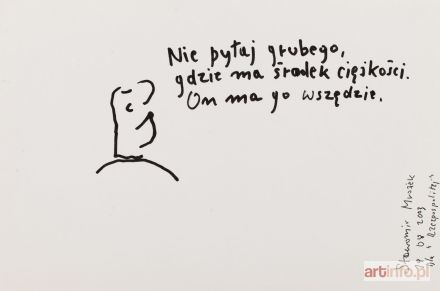 Nie pytaj grubego,
gdzie ma środek ciężkości.
On ma go wszędzie.
Sławomir Mrożek
08 2003
dla "Rzeczpospolitej"
artinfo.pl